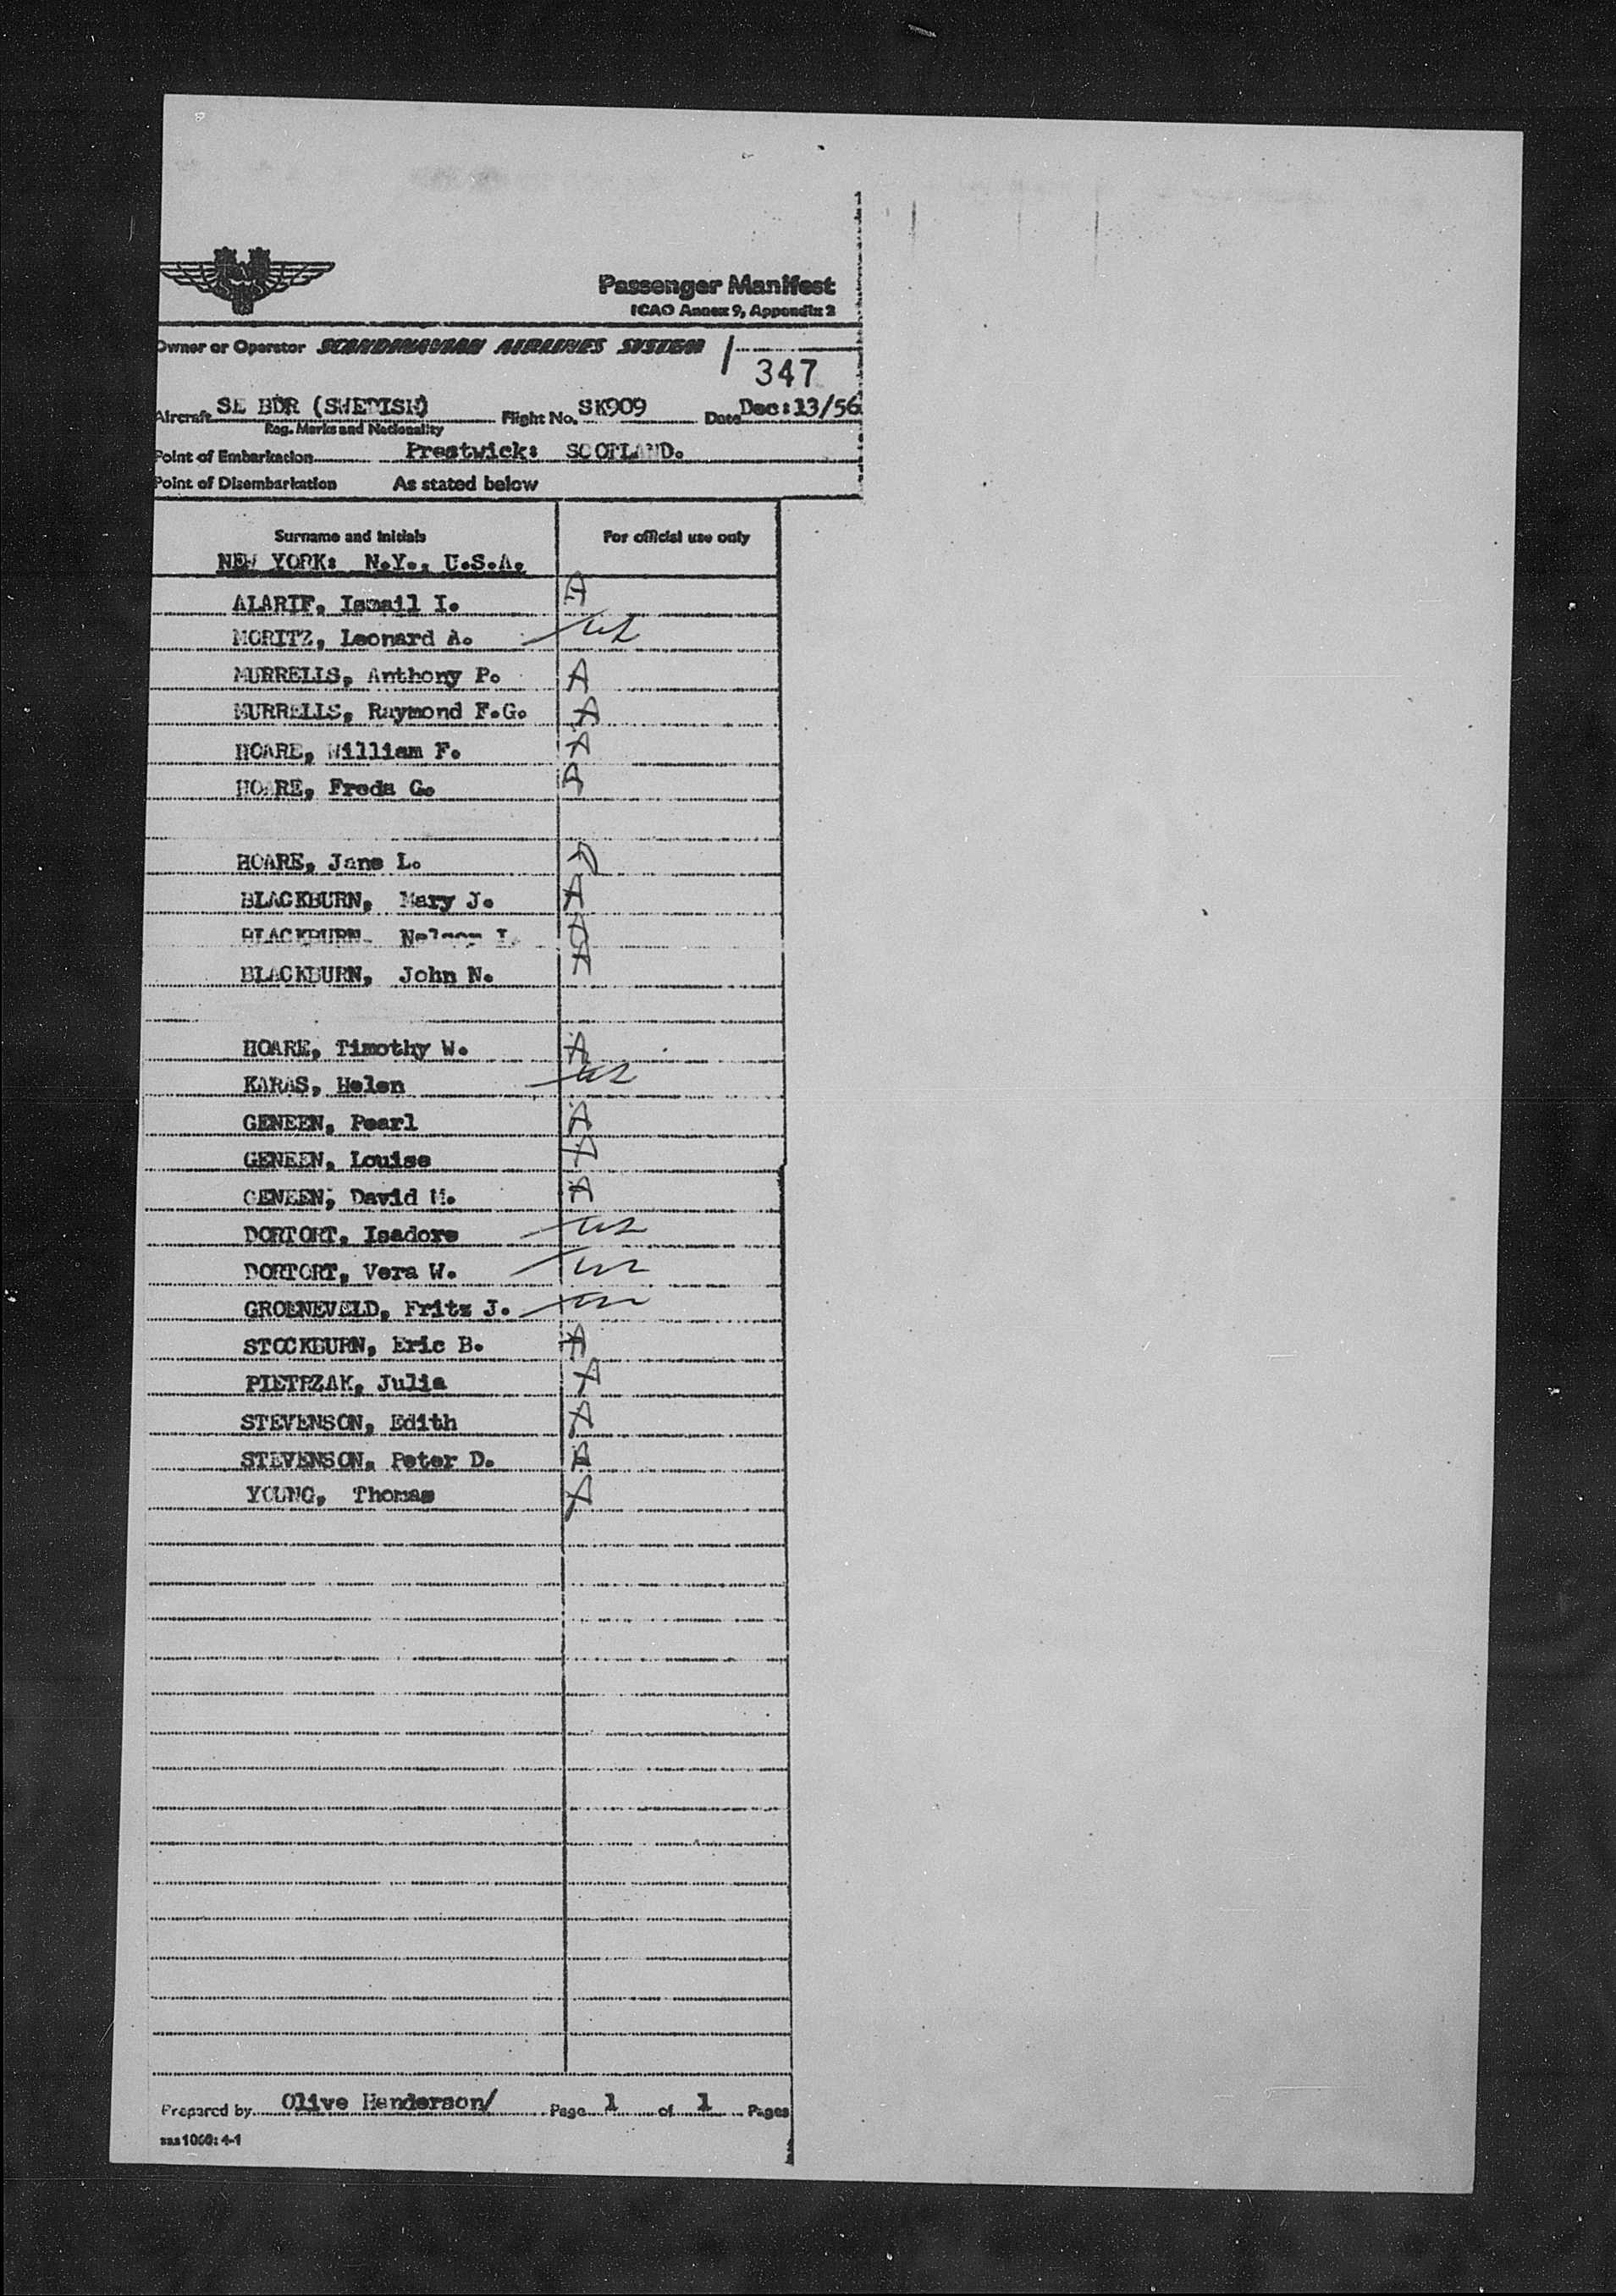 Passenger Manifest
ICAO Annex 9, Appendix 2
Owner or Operator SCANDINAVIAN AIRLINES SYSTEM
347
Aircraft SE BDR (SWEDISH) Flight No. SK909 Date Dec:13/56
Reg. Marks and Nationality
Point of Embarkation Prestwick: SCOTLAND.
Point of Disembarkation As stated below
Surname and initials For official use only
NEW YORK: N.Y., U.S.A.
ALARIF, Ismail I. A
MORITZ, Leonard A.
MURRELLS, Anthony P. A
MURRELLS, Raymond F.G. A
HOARE, William F. A
HOARE, Freda G. A
HOARE, Jane L.
BLACKBURN, Mary J. A
BLACKBURN, Nelson
BLACKBURN, John N. A
HOARE, Timothy W. A
KARAS, Helen
GENEEN, Pearl A
GENEEN, Louise A
GENEEN, David M. A
DORTORT, Isadore
DORTORT, Vera W.
GROENEVELD, Fritz J.
STOCKBURN, Eric B. A
PIETRZAK, Julia A
STEVENSON, Edith A
STEVENSON, Peter D. A
YOUNG, Thomas A
Prepared by Olive Henderson/ Page 1 of 1 Pages